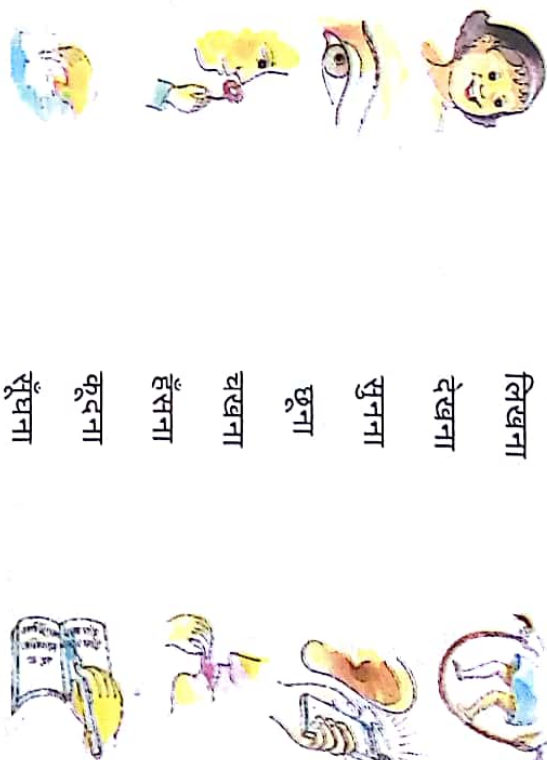 लिखना
देखना
सुनना
छूना
चखना
हँसना
कूदना
सूँघना